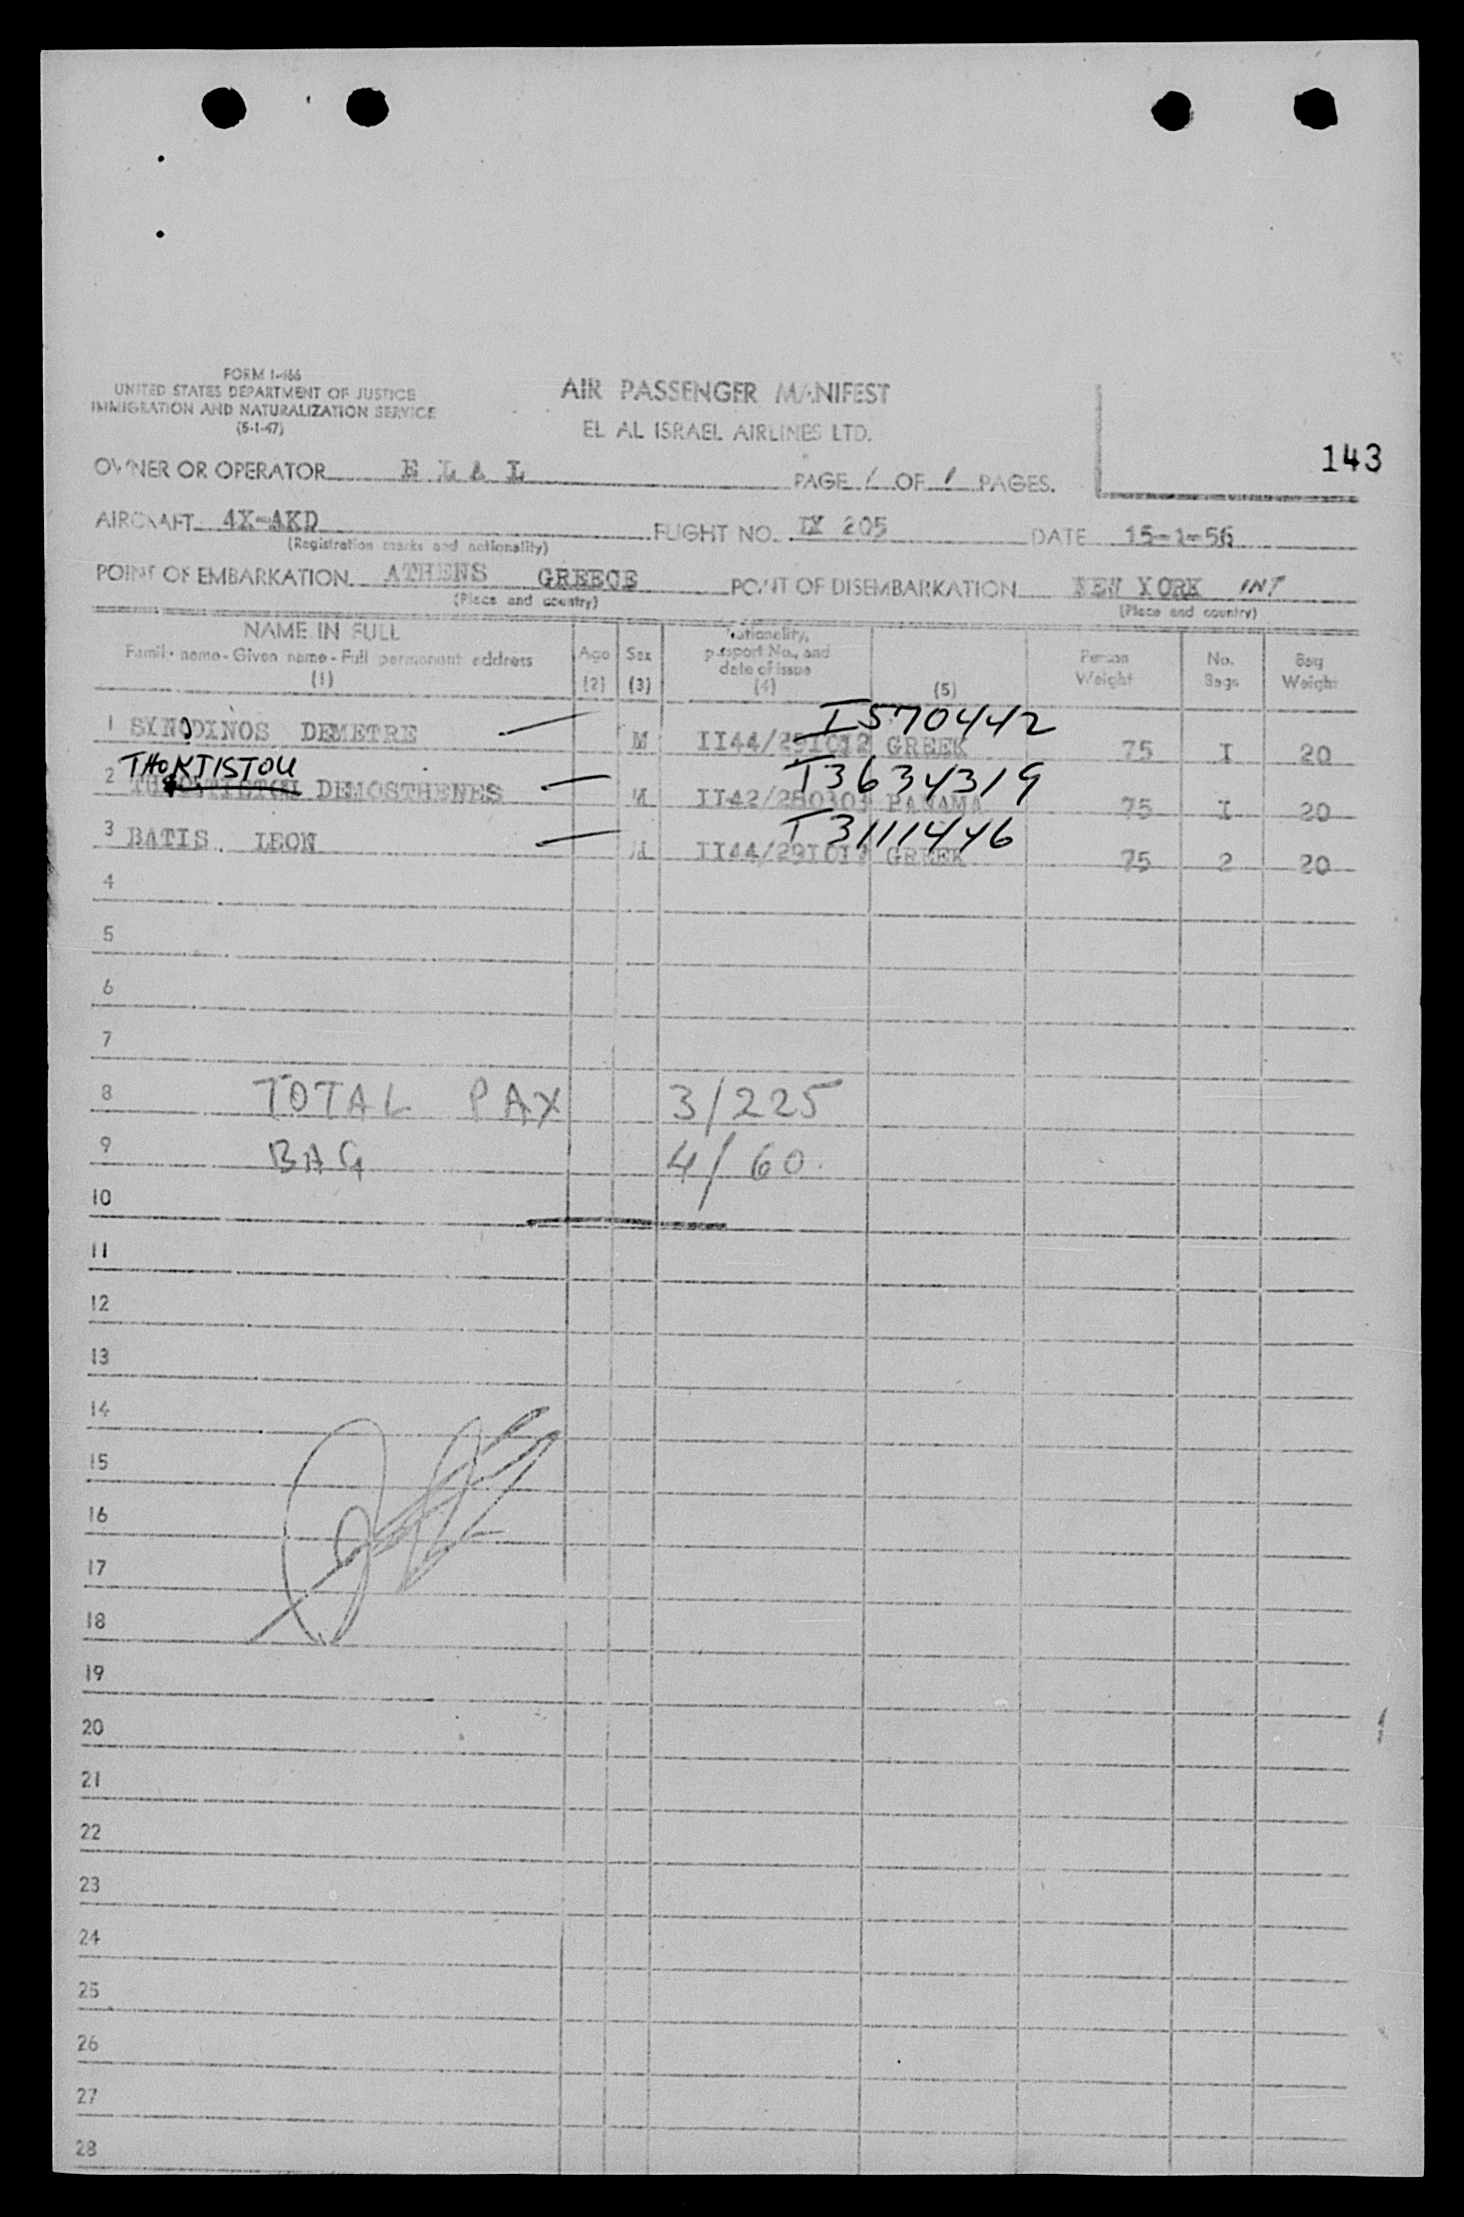 FORM I-466
UNITED STATES DEPARTMENT OF JUSTICE
IMMIGRATION AND NATURALIZATION SERVICE
(5-1-47)
AIR PASSENGER MANIFEST
EL AL ISRAEL AIRLINES LTD.
143
OWNER OR OPERATOR E L A L PAGE 1 OF 1 PAGES.
AIRCRAFT 4X-AKD FLIGHT NO. IX 205 DATE 15-1-56
(Registration marks and nationality)
POINT OF EMBARKATION ATHENS GREECE POINT OF DISEMBARKATION NEW YORK INT
(Place and country) (Place and country)
NAME IN FULL
Family name - Given name - Full permanent address
(1)
Age
(2)
Sex
(3)
Nationality,
passport No., and
date of issue
(4)
(5)
Person
Weight
No.
Bags
Bag
Weight
I 570442
1 SYNODINOS DEMETRE M II44/291012 GREEK 75 I 20
THOKTISTOU I3634319
2 DEMOSTHENES M II42/280304 PANAMA 75 I 20
I 3111446
3 BATIS LEON M II44/291012 GREEK 75 2 20
4
5
6
7
8 TOTAL PAX 3/225
9 BAG 4/60.
10
11
12
13
14
15
16
17
18
19
20
21
22
23
24
25
26
27
28